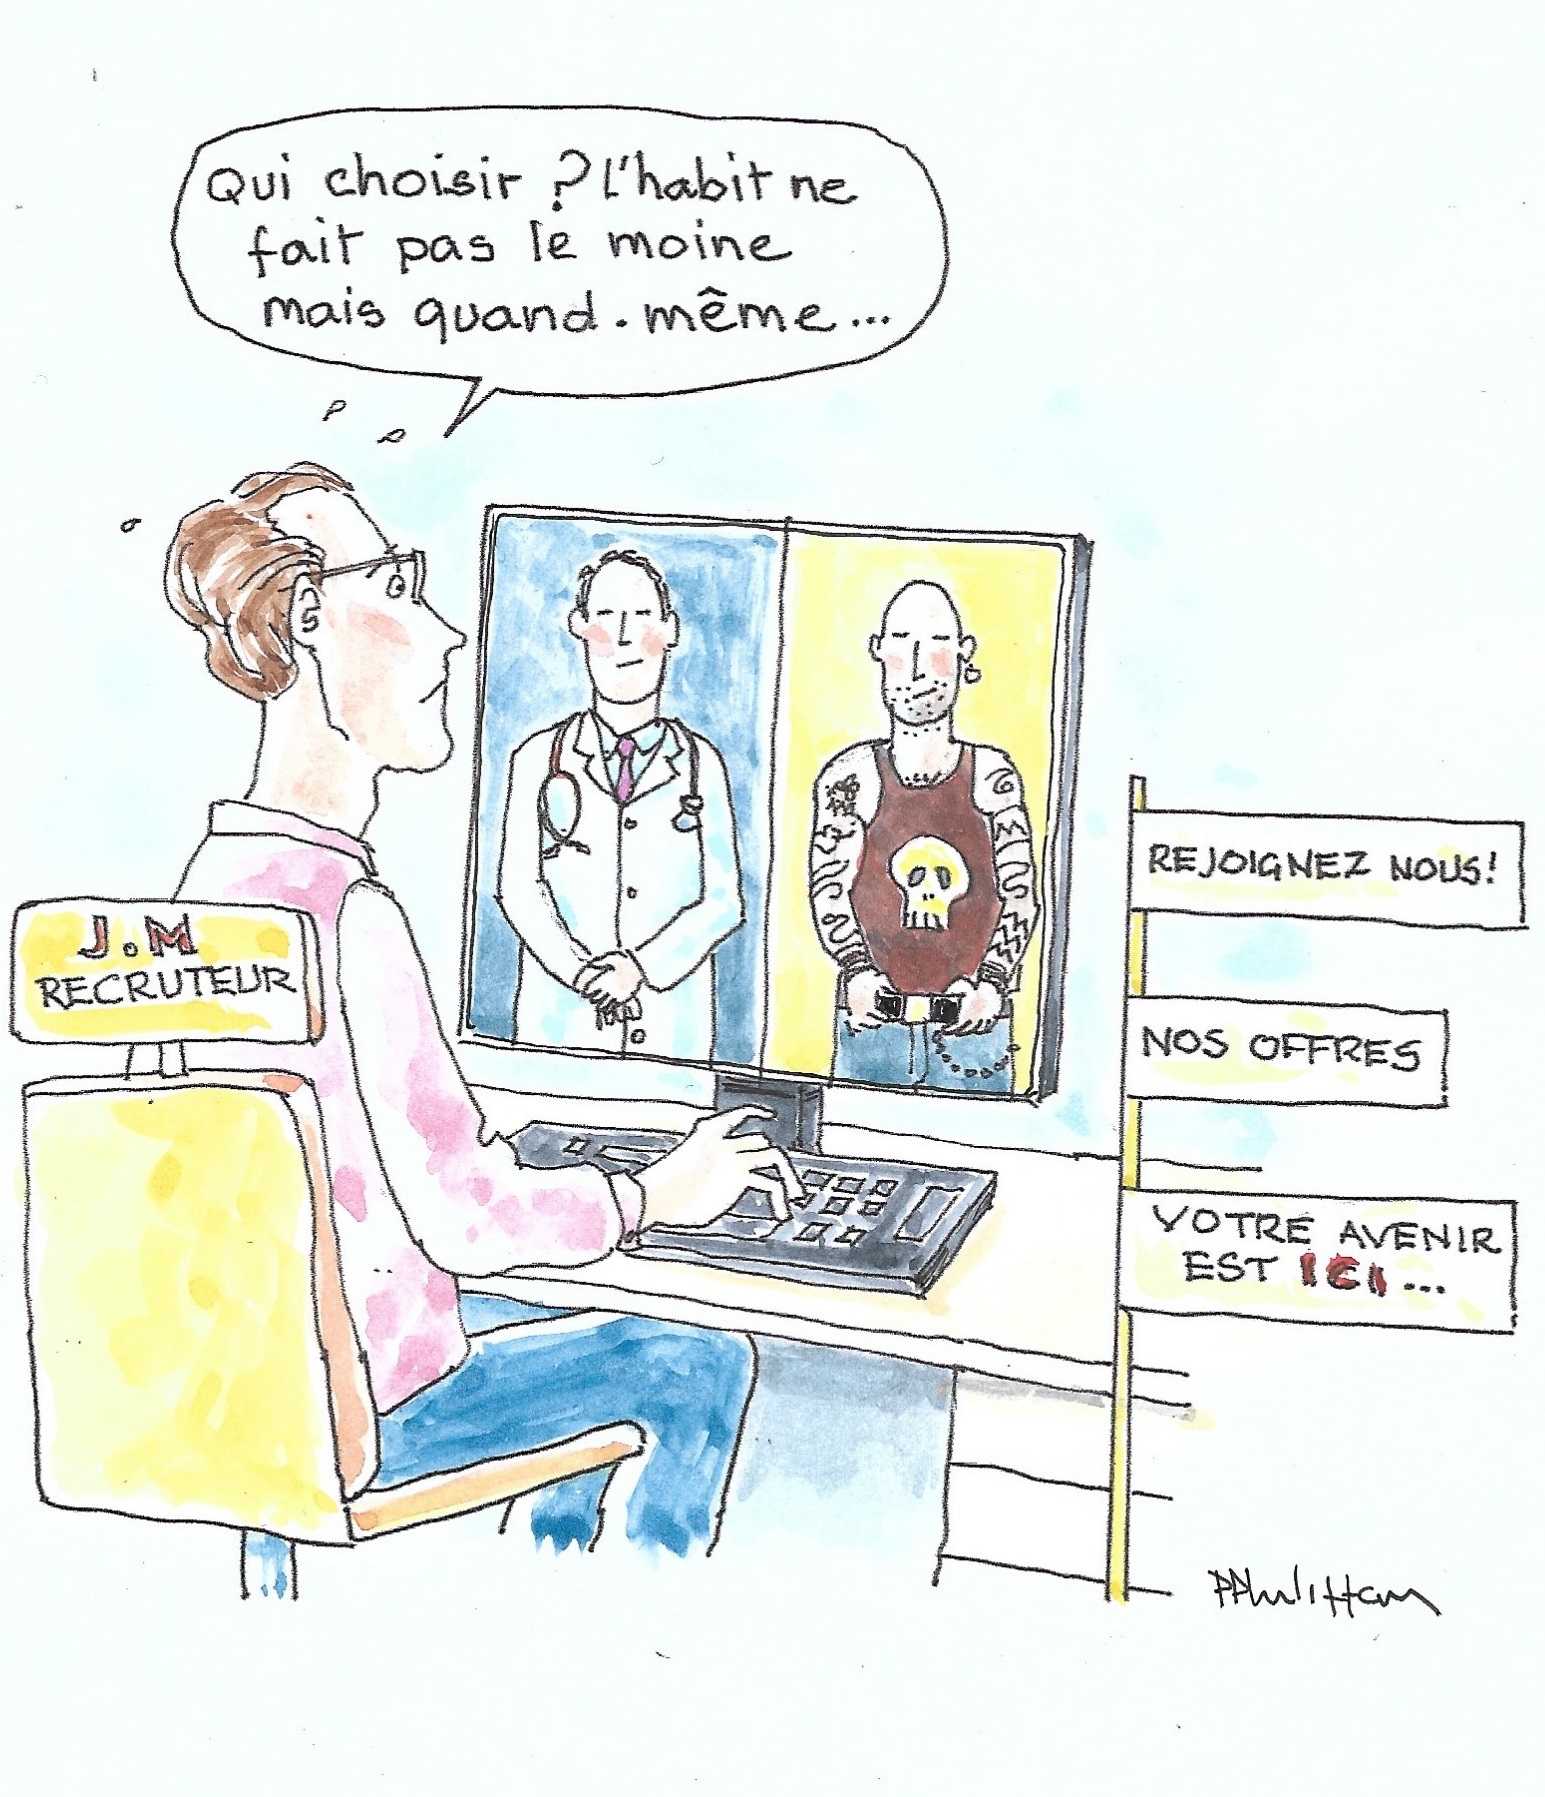 Qui choisir ? l'habit ne
fait pas le moine
mais quand. même...
J.M
RECRUTEUR
REJOIGNEZ NOUS!
NOS OFFRES
VOTRE AVENIR
EST ICI...